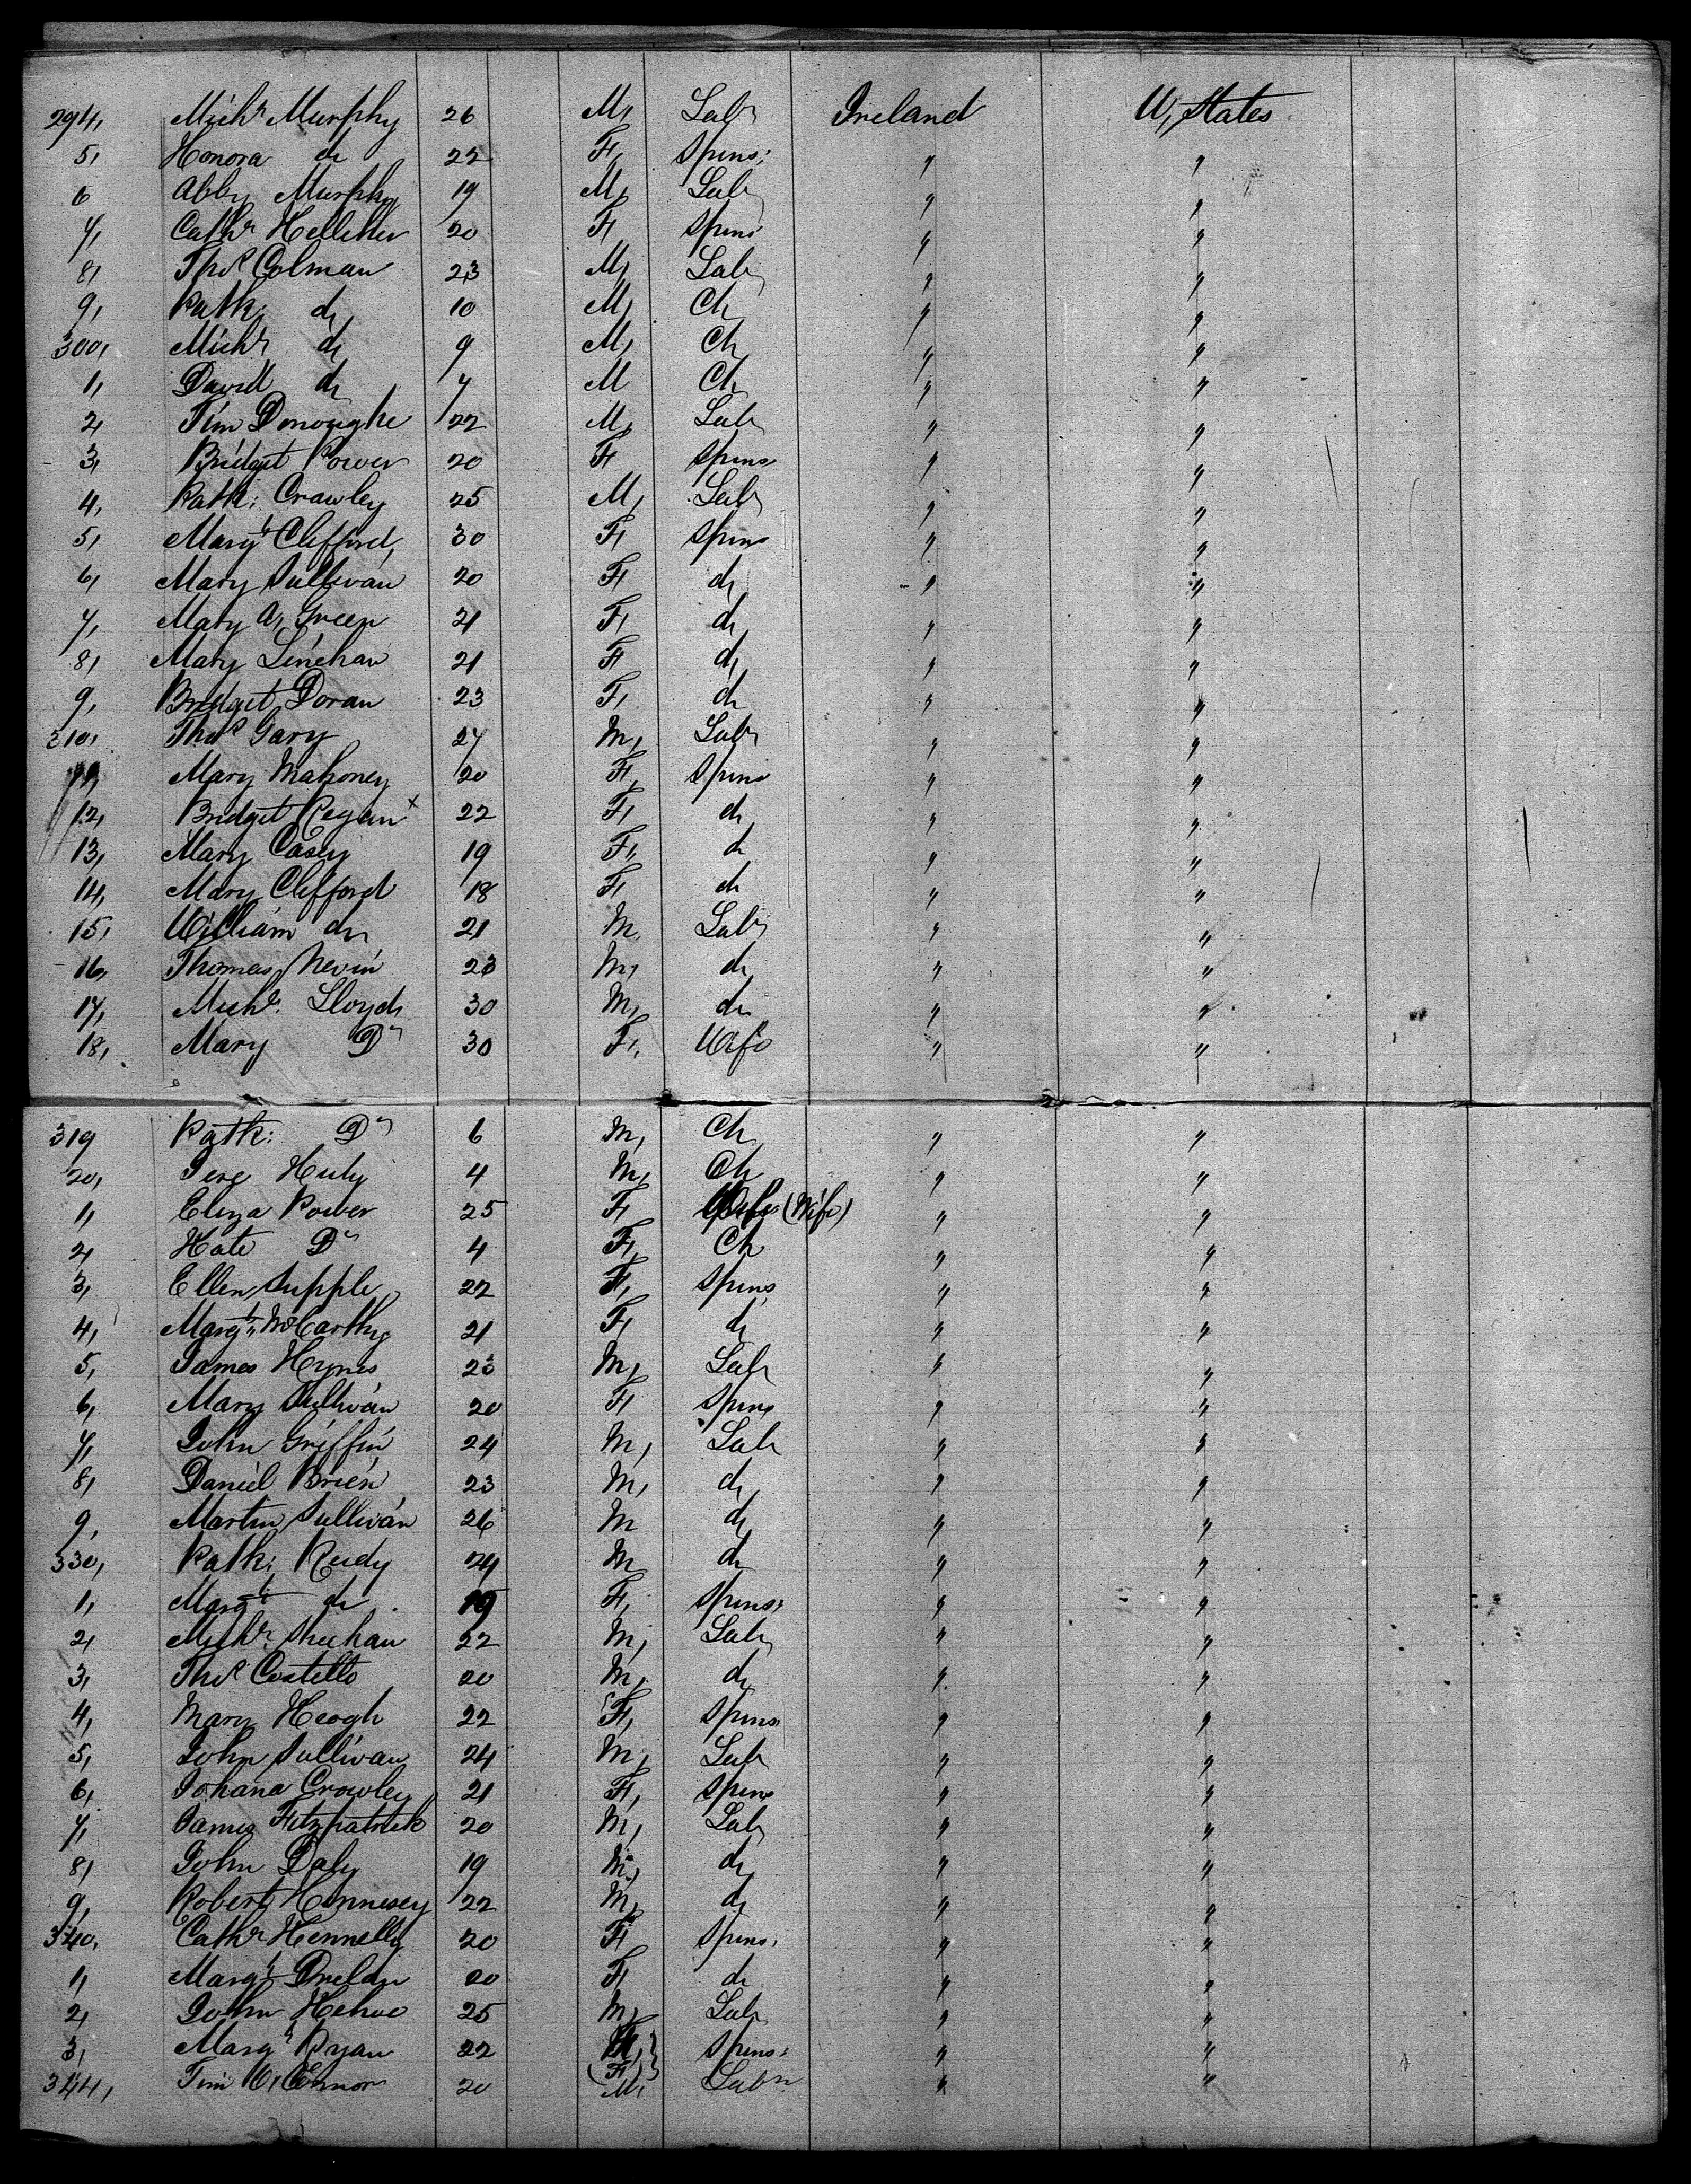 294, Michl Murphy 26 M, Labr Ireland U, States
5, Honora do 22 F, Spins: " "
6 Abby Murphy 19 M, Labr " "
7, Cathe Kelleher 20 F, Spins " "
8, Thos Colman 23 M, Labr " "
9, Patk: do 10 M, Ch " "
300, Michl do 9 M, Ch " "
1, David do 7 M Ch " "
2, Tim Donoughe 22 M, Labr " "
3, Bridget Power 20 F, Spins " "
4, Patk: Crawley 25 M, Labr " "
5, Margt Clifford 30 F, Spins " "
6, Mary Sullivan 20 F, do " "
7, Mary A, Green 21 F, do " "
8, Mary Linehan 21 F, do " "
9, Bridget Doran 23 F, do " "
310, Thos Gary 27 M, Labr " "
11, Mary Mahoney 20 F, Spins " "
12, Bridget Regan x 22 F, do " "
13, Mary Casey 19 F, do " "
14, Mary Clifford 18 F, do " "
15, William do 21 M, Labr " "
16, Thomas Nevin 23 M, do " "
17, Michl. Lloyd 30 M, do " "
18, Mary Do 30 F, Wife " "
319 Patk: Do 6 M, Ch " "
20, Jere Huly 4 M, Ch " "
1, Eliza Power 25 F, (Wife) " "
2, Kate Do 4 F, Ch " "
3, Ellen Supple 22 F, Spins " "
4, Margt McCarthy 21 F, do " "
5, James Hynes 23 M, Labr " "
6, Mary Sullivan 20 F, Spins " "
7, John Griffin 24 M, Labr " "
8, Daniel Brien 23 M, do " "
9, Martin Sullivan 26 M do " "
330, Patk: Reidy 24 M do " "
1, Margt do 19 F, Spins: " "
2, Michl. Sheehan 22 M, Labr " "
3, Thos Costello 20 M, do " "
4, Mary Keogh 22 F, Spins " "
5, John Sullivan 24 M, Labr " "
6, Johana Crowley 21 F, Spins " "
7, James Fitzpatrick 20 M, Labr " "
8, John Daly 19 M, do " "
9, Robert Hennesey 22 M, do " "
340, Cathe Kennelly 20 F, Spins, " "
1, Margt 20 F, do " "
2, John Kehoe 25 M, Labr " "
3, Margt Ryan 22 (F,) Spins: " "
344, Tim O,Connor 20 M, Labr " "